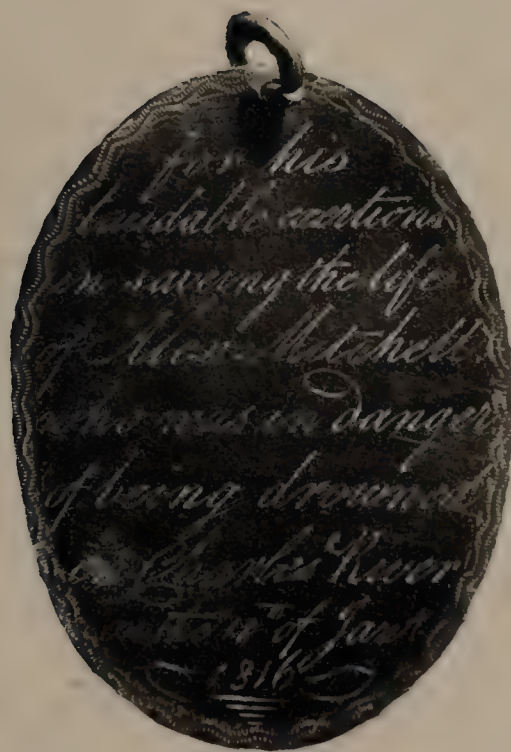 for his
laudable exertions
in saveing the life
of Miss Mitchell
who was in danger
of being drowned
in Charles River
of Janry
1816